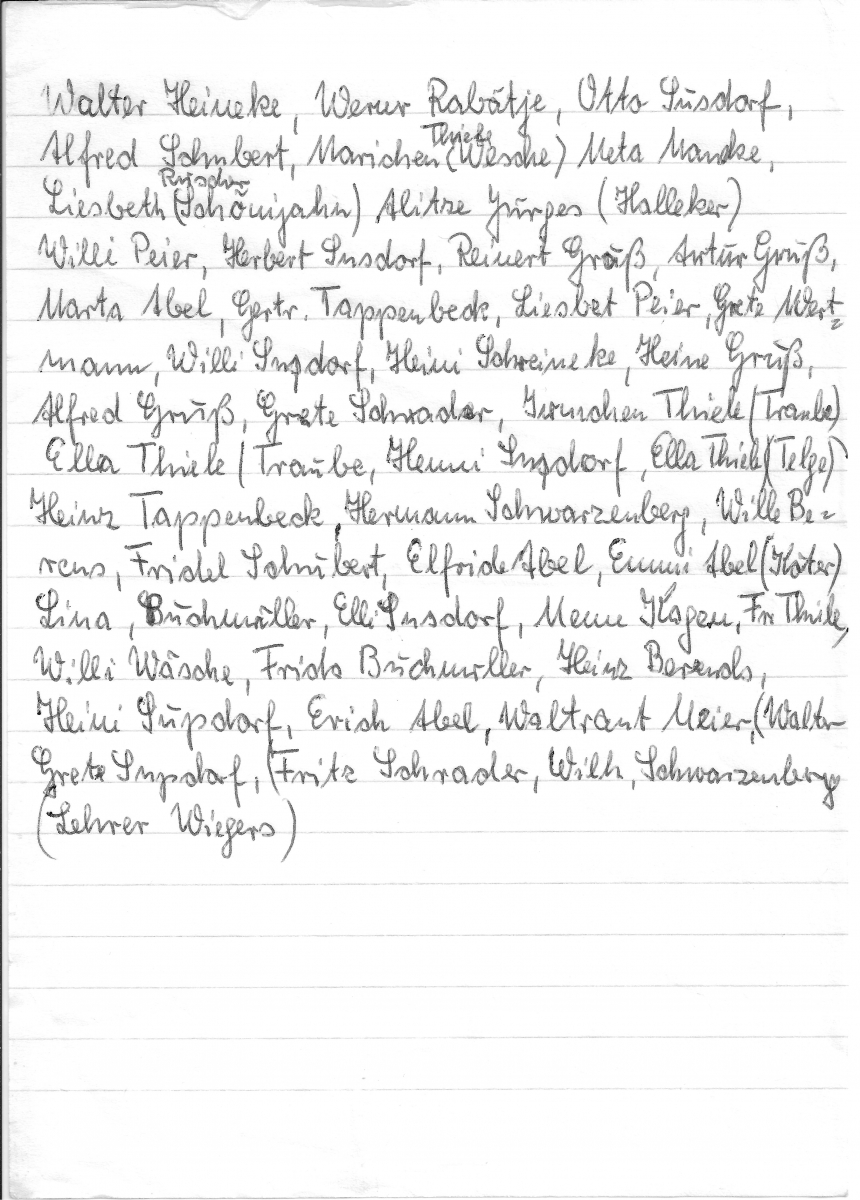 Walter Heineke, Werner Rabätje, Otto Susdorf,
Thiele
Alfred Schubert, Marichen (Wesche) Meta Mancke,
Liesbeth (Schönijahn) Alitze Jürges (Halleker)
Willi Peier, Herbert Susdorf, Reinert Gruß, Artur Gruß,
Marta Abel, Gertr. Tappenbeck, Liesbet Peier, Grete Wert=
mann, Willi Susdorf, Heini Schreineke, Heine Gruß,
Alfred Gruß, Grete Schrader, Irmchen Thiele (Traube)
Ella Thiele (Traube, Henni Susdorf, Ella Thiele (Telge)
Heinz Tappenbeck, Hermann Schwarzenberg, Wille Be=
rens, Fridel Schubert, Elfride Abel, Emmi Abel (Köter)
Lina, Buchmüller, Elli Susdorf, Menne Hagen, Fr Thiele,
Willi Wäsche, Frida Buchmüller, Heinz Berends,
Heini Susdorf, Erich Abel, Waltraut Meier, (Walter
Grete Susdorf, (Fritz Schrader, Wilh, Schwarzenberg
(Lehrer Wiegers)